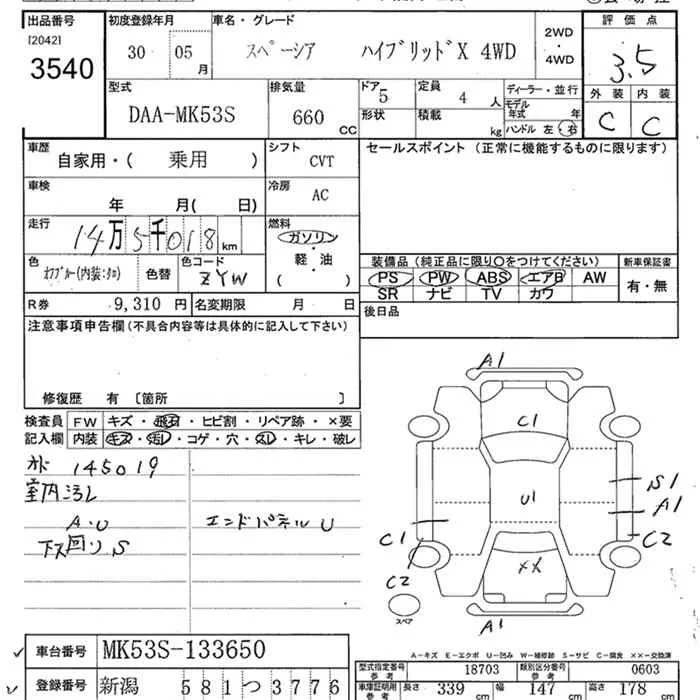 出品番号
[2042]
3540
初度登録年月
30 05 月
車名・グレード
スペーシア ハイブリッドX 4WD
2WD
・
4WD
評価点
3.5
外装 内装
C C
型式
DAA-MK53S
排気量
660 CC
ドア 5
形状
定員 4 人
積載 kg
ディーラー・並行
モデル
年式 年
ハンドル 左・右
車歴
自家用・( 乗用 )
シフト
CVT
セールスポイント (正常に機能するものに限ります)
車検
年 月( 日)
冷房
AC
走行
14万5千018km
燃料
ガソリン
軽・油
( )
色
オフブルー(内装:クロ)
色替
色コード
ZYW
装備品(純正品に限り○をつけてください)
新車保証書
PS PW ABS エアB AW
SR ナビ TV カワ
有・無
R券 9,310 円
名変期限 月 日
後日品
注意事項申告欄(不具合内容等は具体的に記入して下さい)
修復歴 有 〔箇所 〕
検査員
記入欄
FW キズ・飛石・ヒビ割・リペア跡・×要
内装 キズ・汚レ・コゲ・穴・スレ・キレ・破レ
145019
室内汚レ
A・U
エンドパネル U
下回リ S
A1
C1
U1
S1
A1
C1
C2
C2
XX
A1
スペア
A-キズ E-エクボ U-凹み W-補修跡 S-サビ C-腐食 ××-交換済
車台番号
MK53S-133650
登録番号
新潟 581つ3776
型式指定番号
参考
18703
類別区分番号
参考
0603
車庫証明用
参考
長さ 339 cm
幅 147 cm
高さ 178 cm